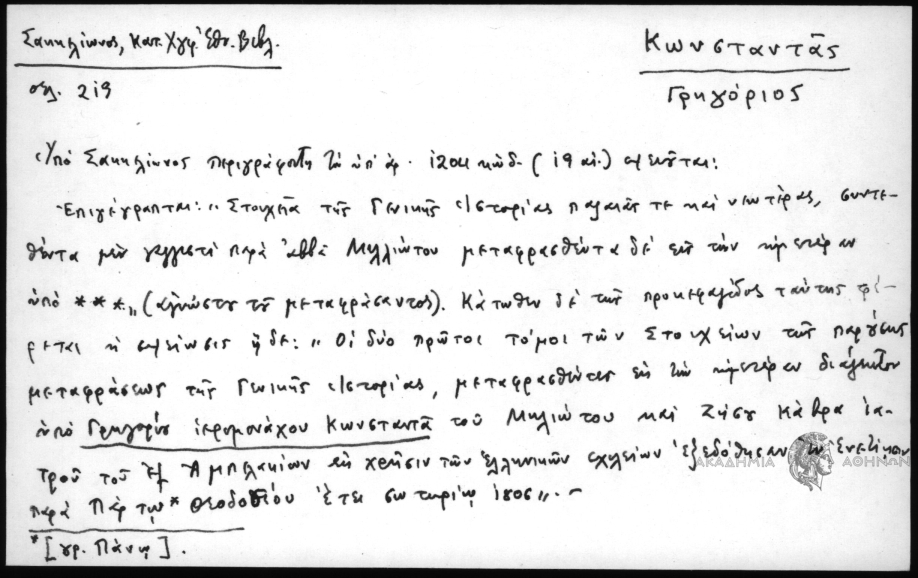 Σακκελίωνος, Κατ. Χγφ. Εθν. Βιβλ.
Κωνσταντᾶς
Γρηγόριος
σελ. 219
Ὑπό Σακκελίωνος περιγράφοντος τὸν ὑπ' ἀρ. 1204 κώδ. (19 αἰ.) σημειοῦται:
Ἐπιγέγραπται: „Στοιχεῖα τῆς Γενικῆς Ἱστορίας παλαιᾶς τε καὶ νεωτέρας, συντε-
θέντα μὲν γαλλιστὶ παρὰ ἀββᾶ Μιλλιώτου μεταφρασθέντα δὲ εἰς τὴν ἡμετέραν
ὑπὸ ***„ (ἀγνώστου τοῦ μεταφράσαντος). Κάτωθεν δὲ τῆς προκεφαλίδος ταύτης φέ-
ρεται ἡ σημείωσις ἥδε: „Οἱ δύο πρῶτοι τόμοι τῶν Στοιχείων τῆς παρούσης
μεταφράσεως τῆς Γενικῆς Ἱστορίας, μεταφρασθέντες εἰς τὴν ἡμετέραν διάλεκτον
ὑπὸ Γρηγορίου ἱερομονάχου Κωνσταντᾶ τοῦ Μηλιώτου καὶ Ζήσου Κάβρα ἰα-
τροῦ τοῦ ἐξ Ἀμπελακίων εἰς χρῆσιν τῶν ἑλληνικῶν σχολείων ἐξεδόθησαν ἐν Ἐνετίῃσιν
παρὰ Πάρ τῳ* Θεοδοσίου ἔτει σωτηρίῳ 1806„.-
* [γρ. Πάνῳ].
ΑΚΑΔΗΜΙΑ ΑΘΗΝΩΝ